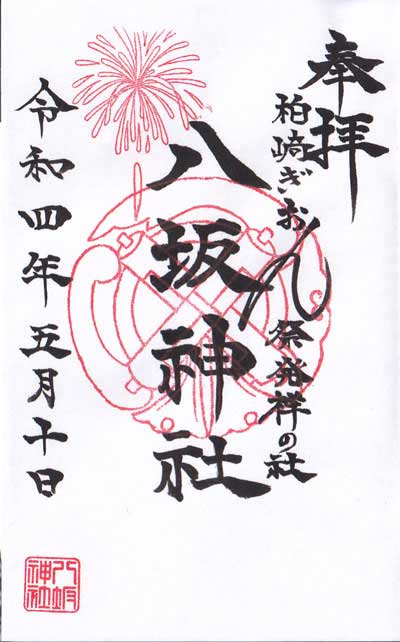 奉拝
柏崎ぎおん祭発祥の社
八坂神社
令和四年五月十日
八坂神社